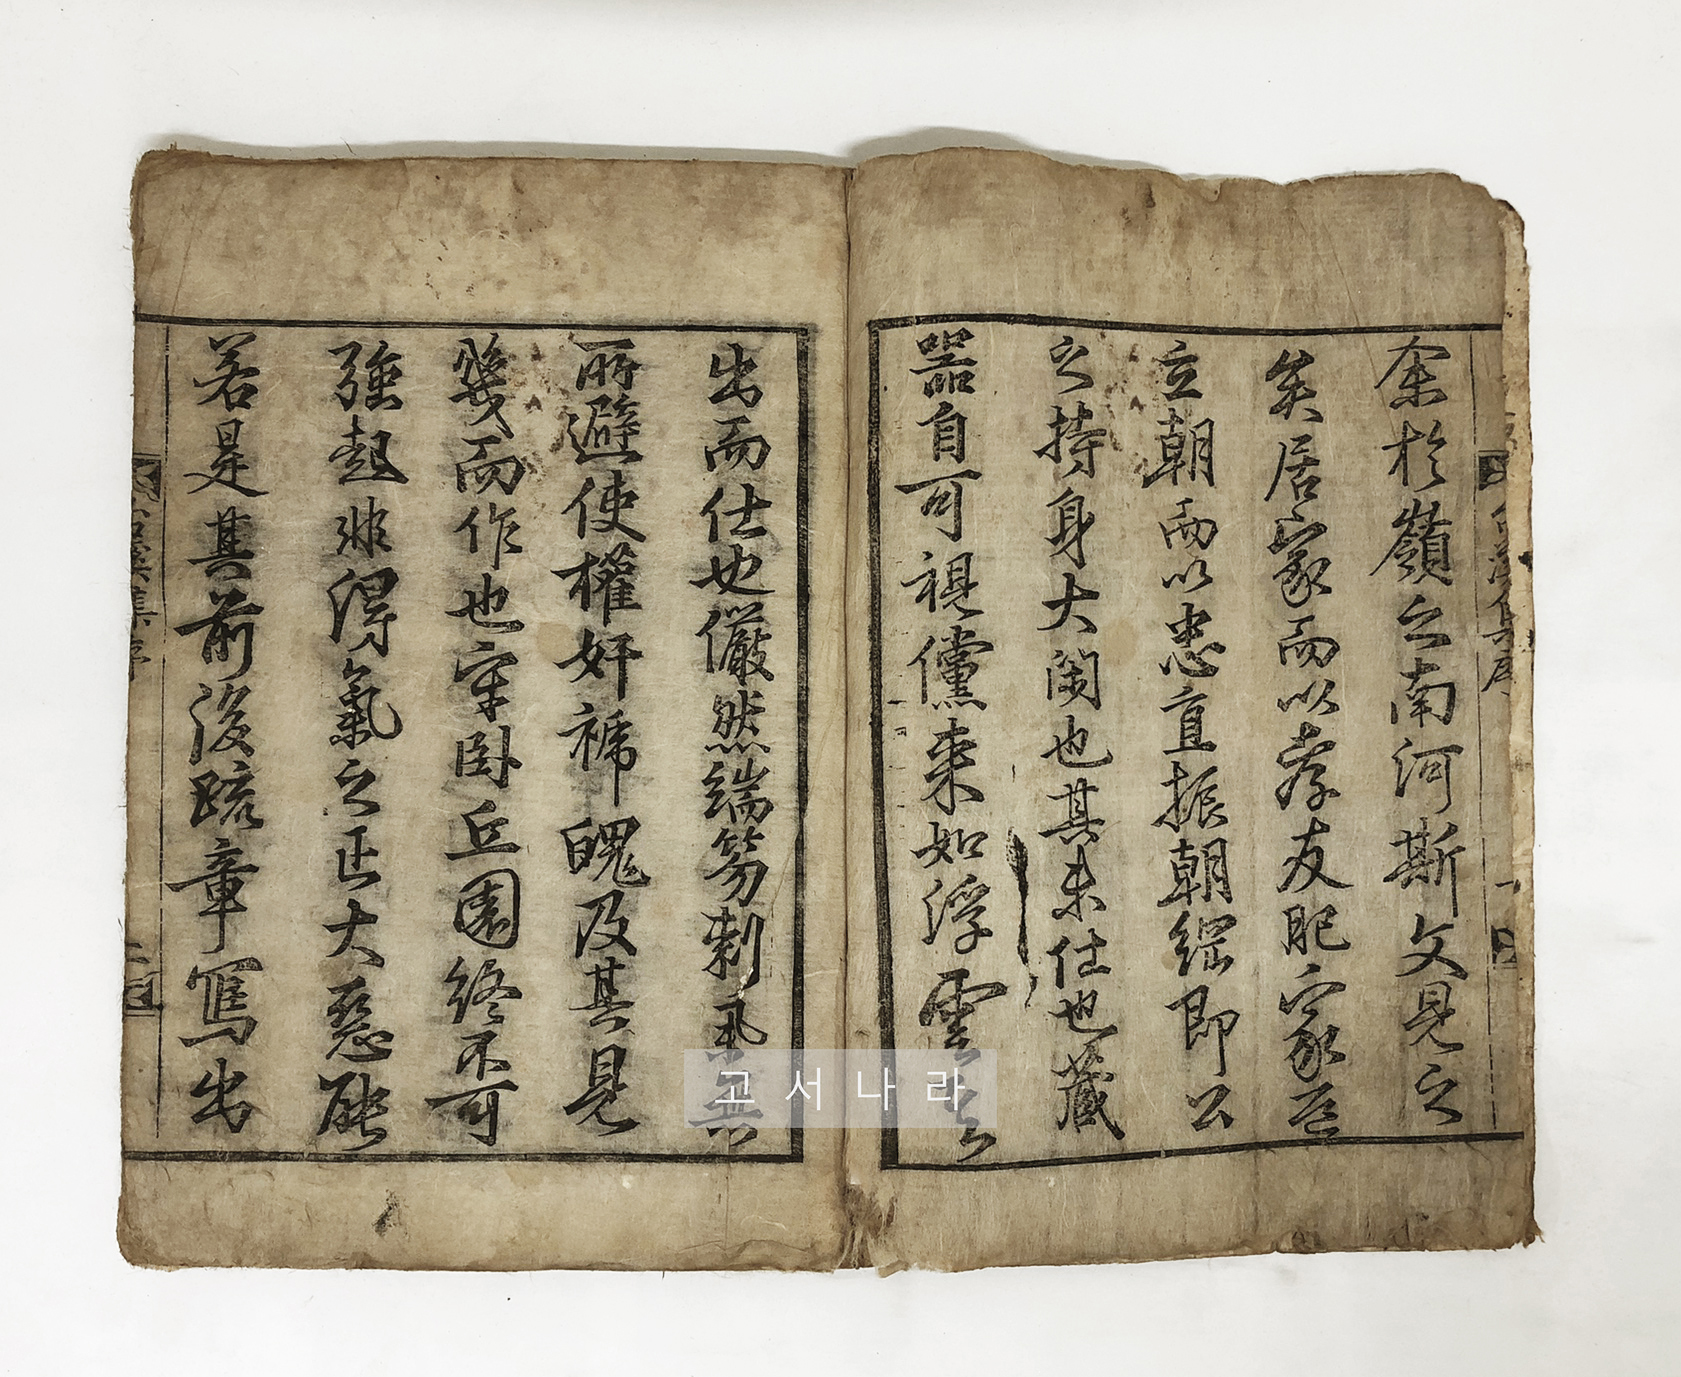 余於嶺之南河斯文見之
矣居家而以孝友肥家㐫
立朝而以忠直振朝綱即公
之持身大閑也其未仕也藏
器自可視儻來如浮雲
出而仕也儼然端笏刺
所避使權奸褫魄及其見
幾而作也牢臥丘園終不可
強起非得氣之正大惡能
若是其前後疏章寫出
集序
고서나라